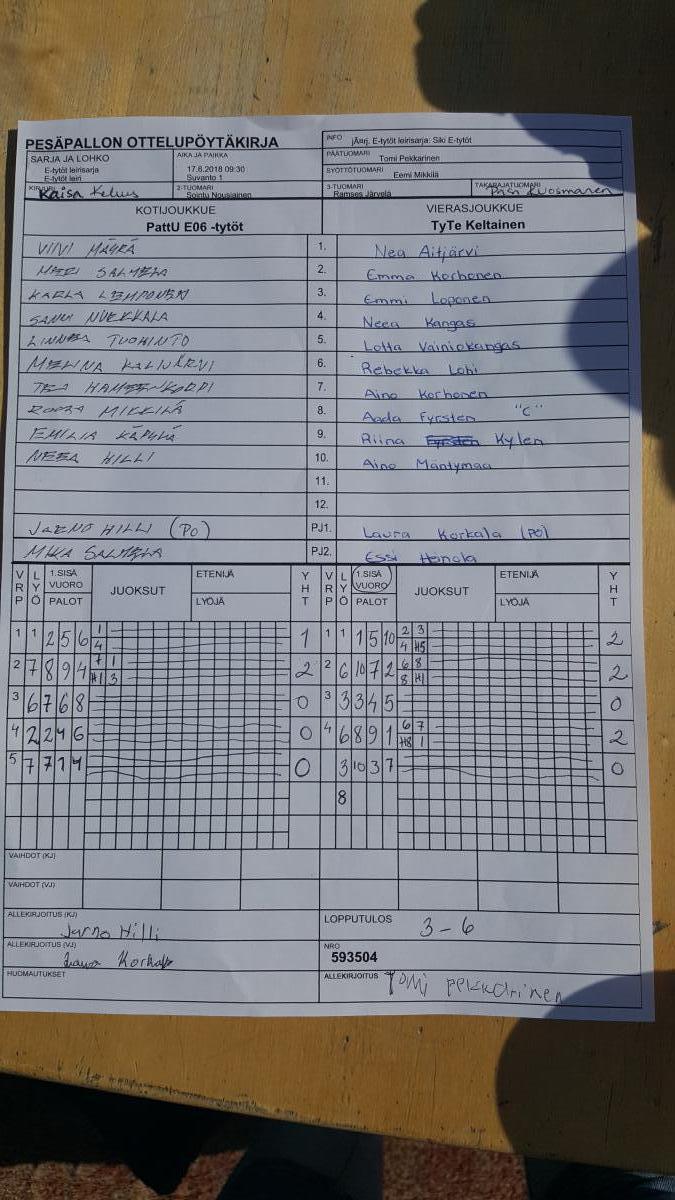 PESÄPALLON OTTELUPÖYTÄKIRJA
INFO jÃ¤rj. E-tytöt leirisarja: Siki E-tytöt
SARJA JA LOHKO
E-tytöt leirisarja
E-tytöt leiri
AIKA JA PAIKKA
17.6.2018 09:30
Suvanto 1
PÄÄTUOMARI
Tomi Pekkarinen
SYÖTTÖTUOMARI
Eemi Mikkilä
KIRJURI Kaisa Keluus
2-TUOMARI
Sointu Nousiainen
3-TUOMARI
Ramses Järvelä
TAKARAJATUOMARI
Kuosmanen
KOTIJOUKKUE
PattU E06 -tytöt
VIERASJOUKKUE
TyTe Keltainen
VIIVI MÄYRÄ 1. Nea Aitjärvi
MERI SALMELA 2. Emma Korhonen
KARLA LEMPONEN 3. Emmi Loponen
SANNI NUEKKALA 4. Neea Kangas
LINNEA TUOHINTO 5. Lotta Vainiokangas
MELINA KALIJÄRVI 6. Rebekka Lohi
TEA HAMEENKORPI 7. Aino Korhonen
ROOSA MIKKILÄ 8. Aada Fyrsten "C"
EMILIA KÄPYLÄ 9. Riina Kylen
NEEA HILLI 10. Aino Mäntymaa
11.
12.
JARNO HILLI (PO) PJ1. Laura Korkala (PO)
MIKA SALMELA PJ2. Essi Heinola
VRP LYÖ 1.SISÄ VUORO PALOT JUOKSUT ETENIJÄ LYÖJÄ YHT VRP LYÖ 1.SISÄ VUORO PALOT JUOKSUT ETENIJÄ LYÖJÄ YHT
1 1 2 5 6 1 4 1 1 1 1 5 10 2 3 4 H5 2
2 7 8 9 4 7 1 H1 3 2 2 6 10 7 2 6 8 8 H1 2
3 6 7 6 8 0 3 3 3 4 5 0
4 2 2 4 6 0 4 6 8 9 1 6 7 H8 1 2
5 7 7 1 4 0 3 10 3 7 0
8
VAIHDOT (KJ)
VAIHDOT (VJ)
ALLEKIRJOITUS (KJ)
Jarno Hilli
LOPPUTULOS 3 - 6
ALLEKIRJOITUS (VJ)
Laura Korkala
NRO
593504
HUOMAUTUKSET
ALLEKIRJOITUS Tomi pekkarinen